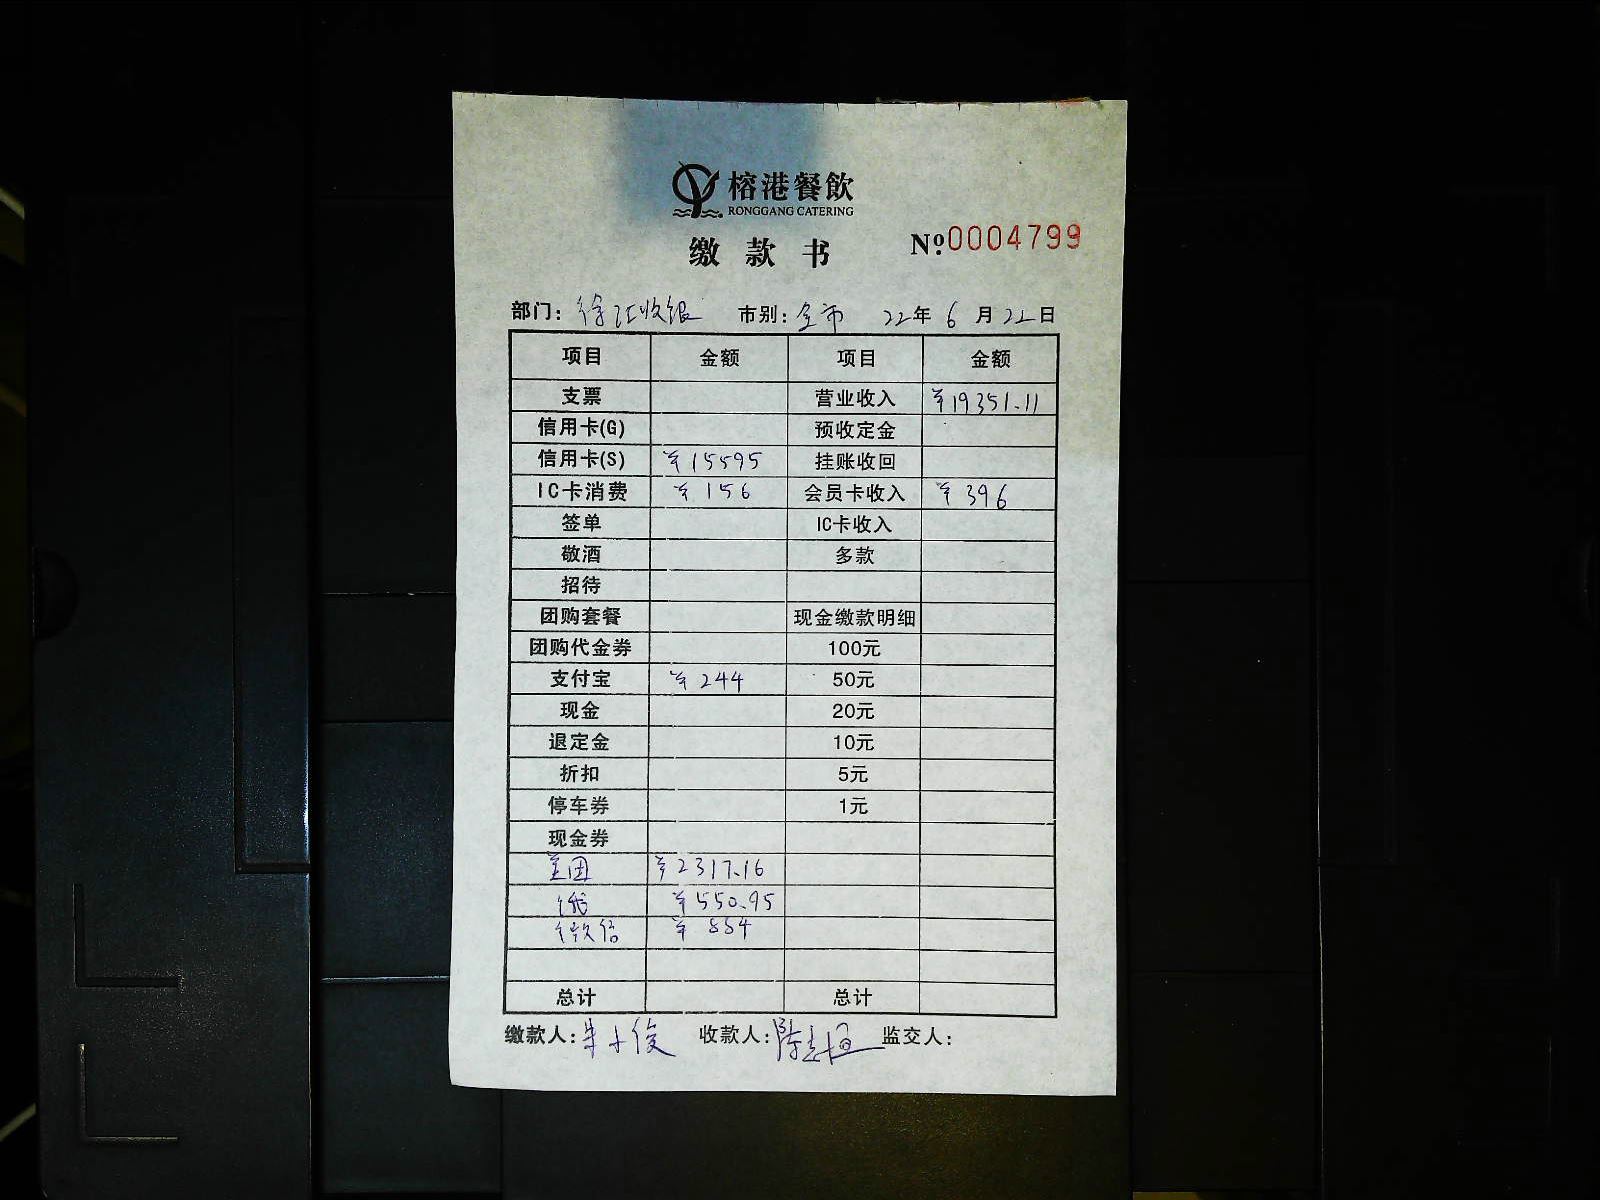 榕港餐飲
RONGGANG CATERING
缴款书 №0004799
部门: 徐汇收银 市别: 全市 22年 6月 22日
项目 金额 项目 金额
支票 营业收入 ¥19351.11
信用卡(G) 预收定金
信用卡(S) ¥15595 挂账收回
IC卡消费 ¥156 会员卡收入 ¥396
签单 IC卡收入
敬酒 多款
招待
团购套餐 现金缴款明细
团购代金券 100元
支付宝 ¥244 50元
现金 20元
退定金 10元
折扣 5元
停车券 1元
现金券
美团 ¥2317.16
饿 ¥550.95
微信 ¥884
总计 总计
缴款人: 朱小俊 收款人: 监交人: